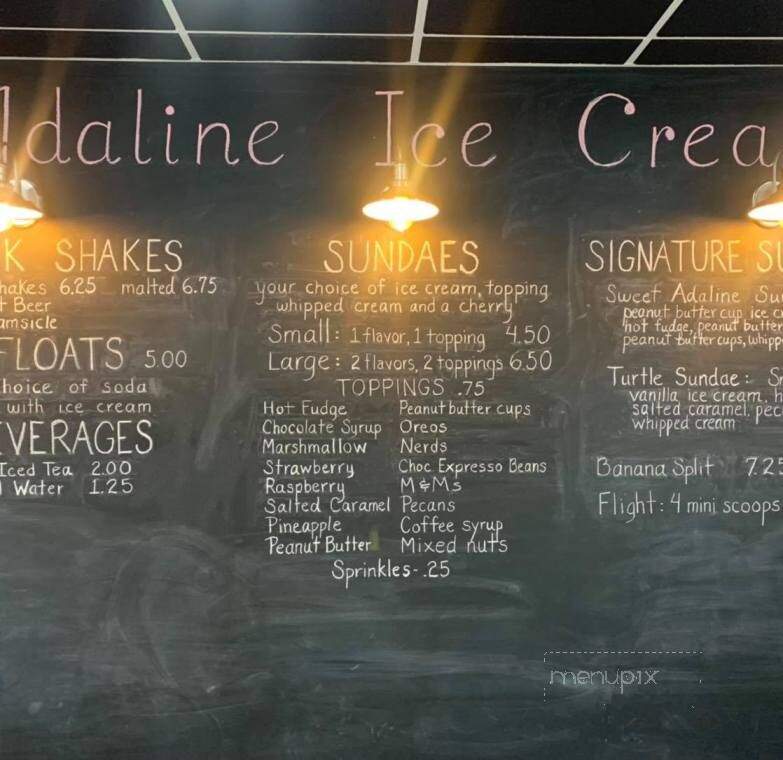 daline Ice Crea
K SHAKES
hakes 6.25 malted 6.75
t Beer
amsicle
FLOATS 5.00
hoice of soda
with ice cream
EVERAGES
Iced Tea 2.00
l Water 1.25
SUNDAES
your choice of ice cream, topping
whipped cream and a cherry
Small: 1 flavor, 1 topping 4.50
Large: 2 flavors, 2 toppings 6.50
TOPPINGS .75
Hot Fudge Peanut butter cups
Chocolate Syrup Oreos
Marshmallow Nerds
Strawberry Choc Expresso Beans
Raspberry M&Ms
Salted Caramel Pecans
Pineapple Coffee syrup
Peanut Butter Mixed nuts
Sprinkles - .25
SIGNATURE SU
Sweet Adaline Su
peanut butter cup ice cr
hot fudge, peanut butte
peanut butter cups, whipp
Turtle Sundae: S
vanilla ice cream, h
salted caramel, pec
whipped cream
Banana Split 7.25
Flight: 4 mini scoops
menupix